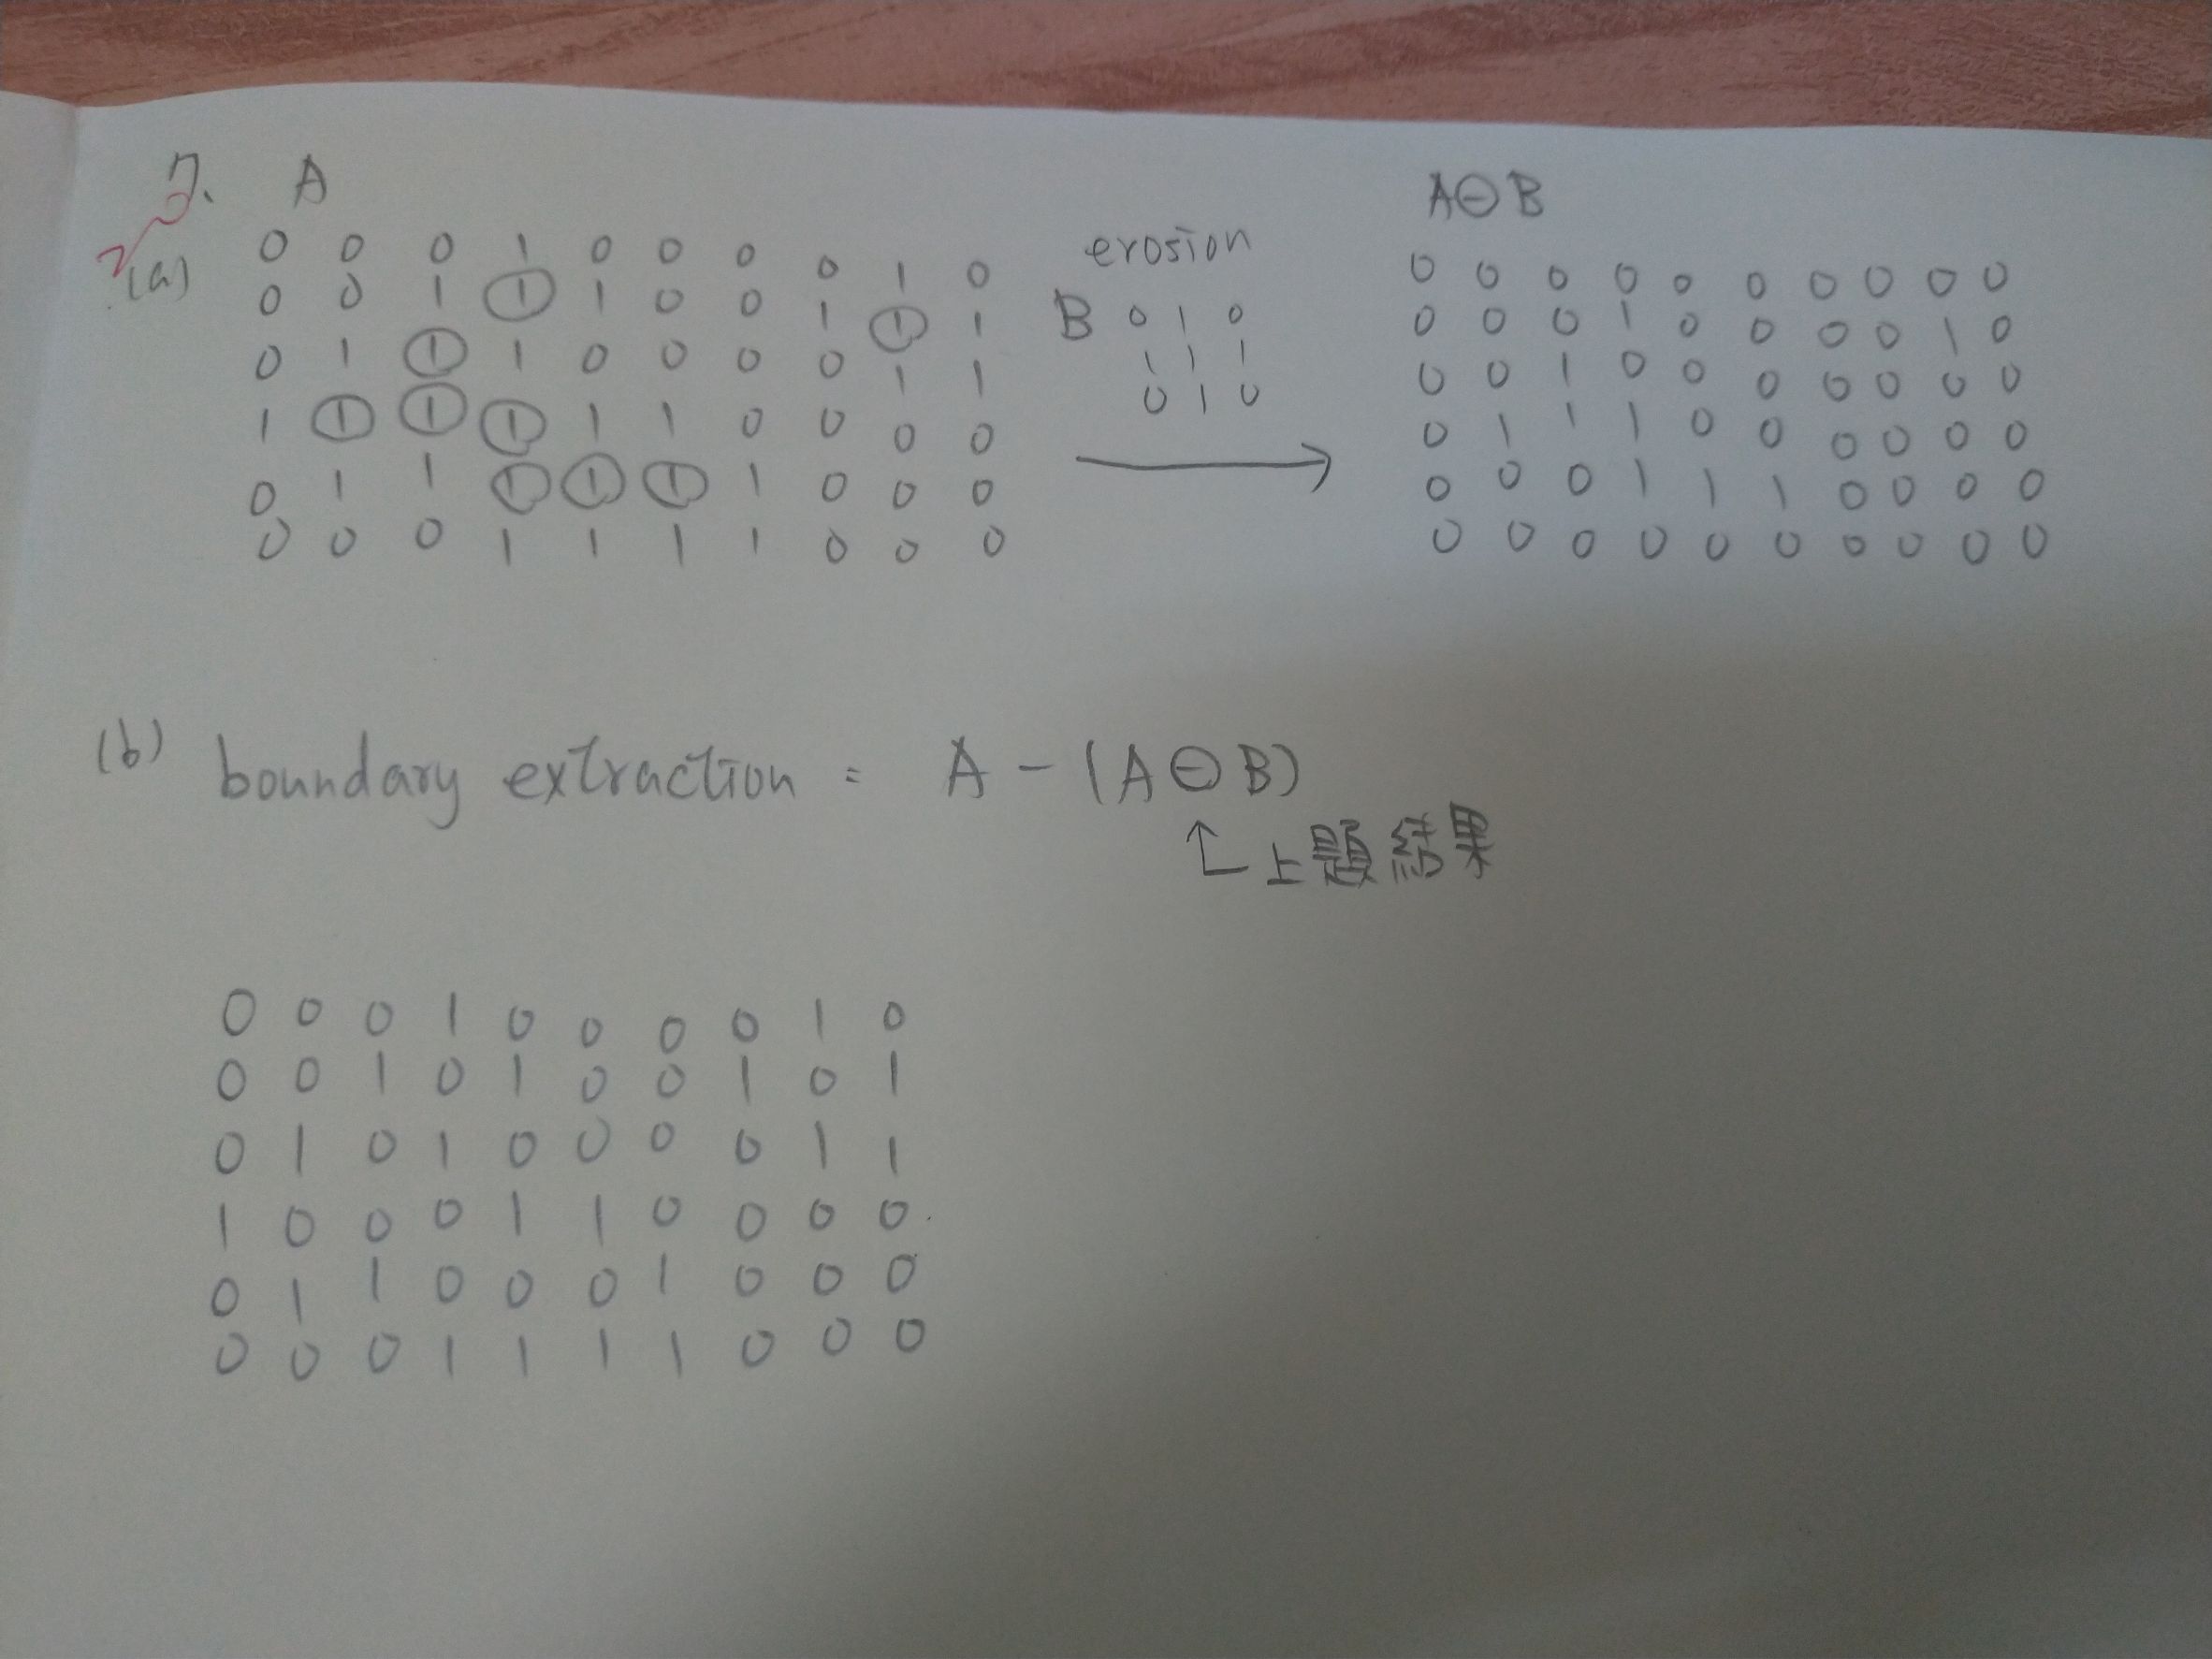 7. A
(a)
0 0 0 1 0 0 0 0 1 0
0 0 1 1 1 0 0 1 1 1
0 1 1 1 0 0 0 0 1 1
1 1 1 1 1 1 0 0 0 0
0 1 1 1 1 1 1 0 0 0
0 0 0 1 1 1 1 0 0 0
erosion
B 0 1 0
1 1 1
0 1 0
A⊖B
0 0 0 0 0 0 0 0 0 0
0 0 0 1 0 0 0 0 1 0
0 0 1 0 0 0 0 0 0 0
0 1 1 1 0 0 0 0 0 0
0 0 0 1 1 1 0 0 0 0
0 0 0 0 0 0 0 0 0 0
(b) boundary extraction = A - (A⊖B)
上題結果
0 0 0 1 0 0 0 0 1 0
0 0 1 0 1 0 0 1 0 1
0 1 0 1 0 0 0 0 1 1
1 0 0 0 1 1 0 0 0 0
0 1 1 0 0 0 1 0 0 0
0 0 0 1 1 1 1 0 0 0